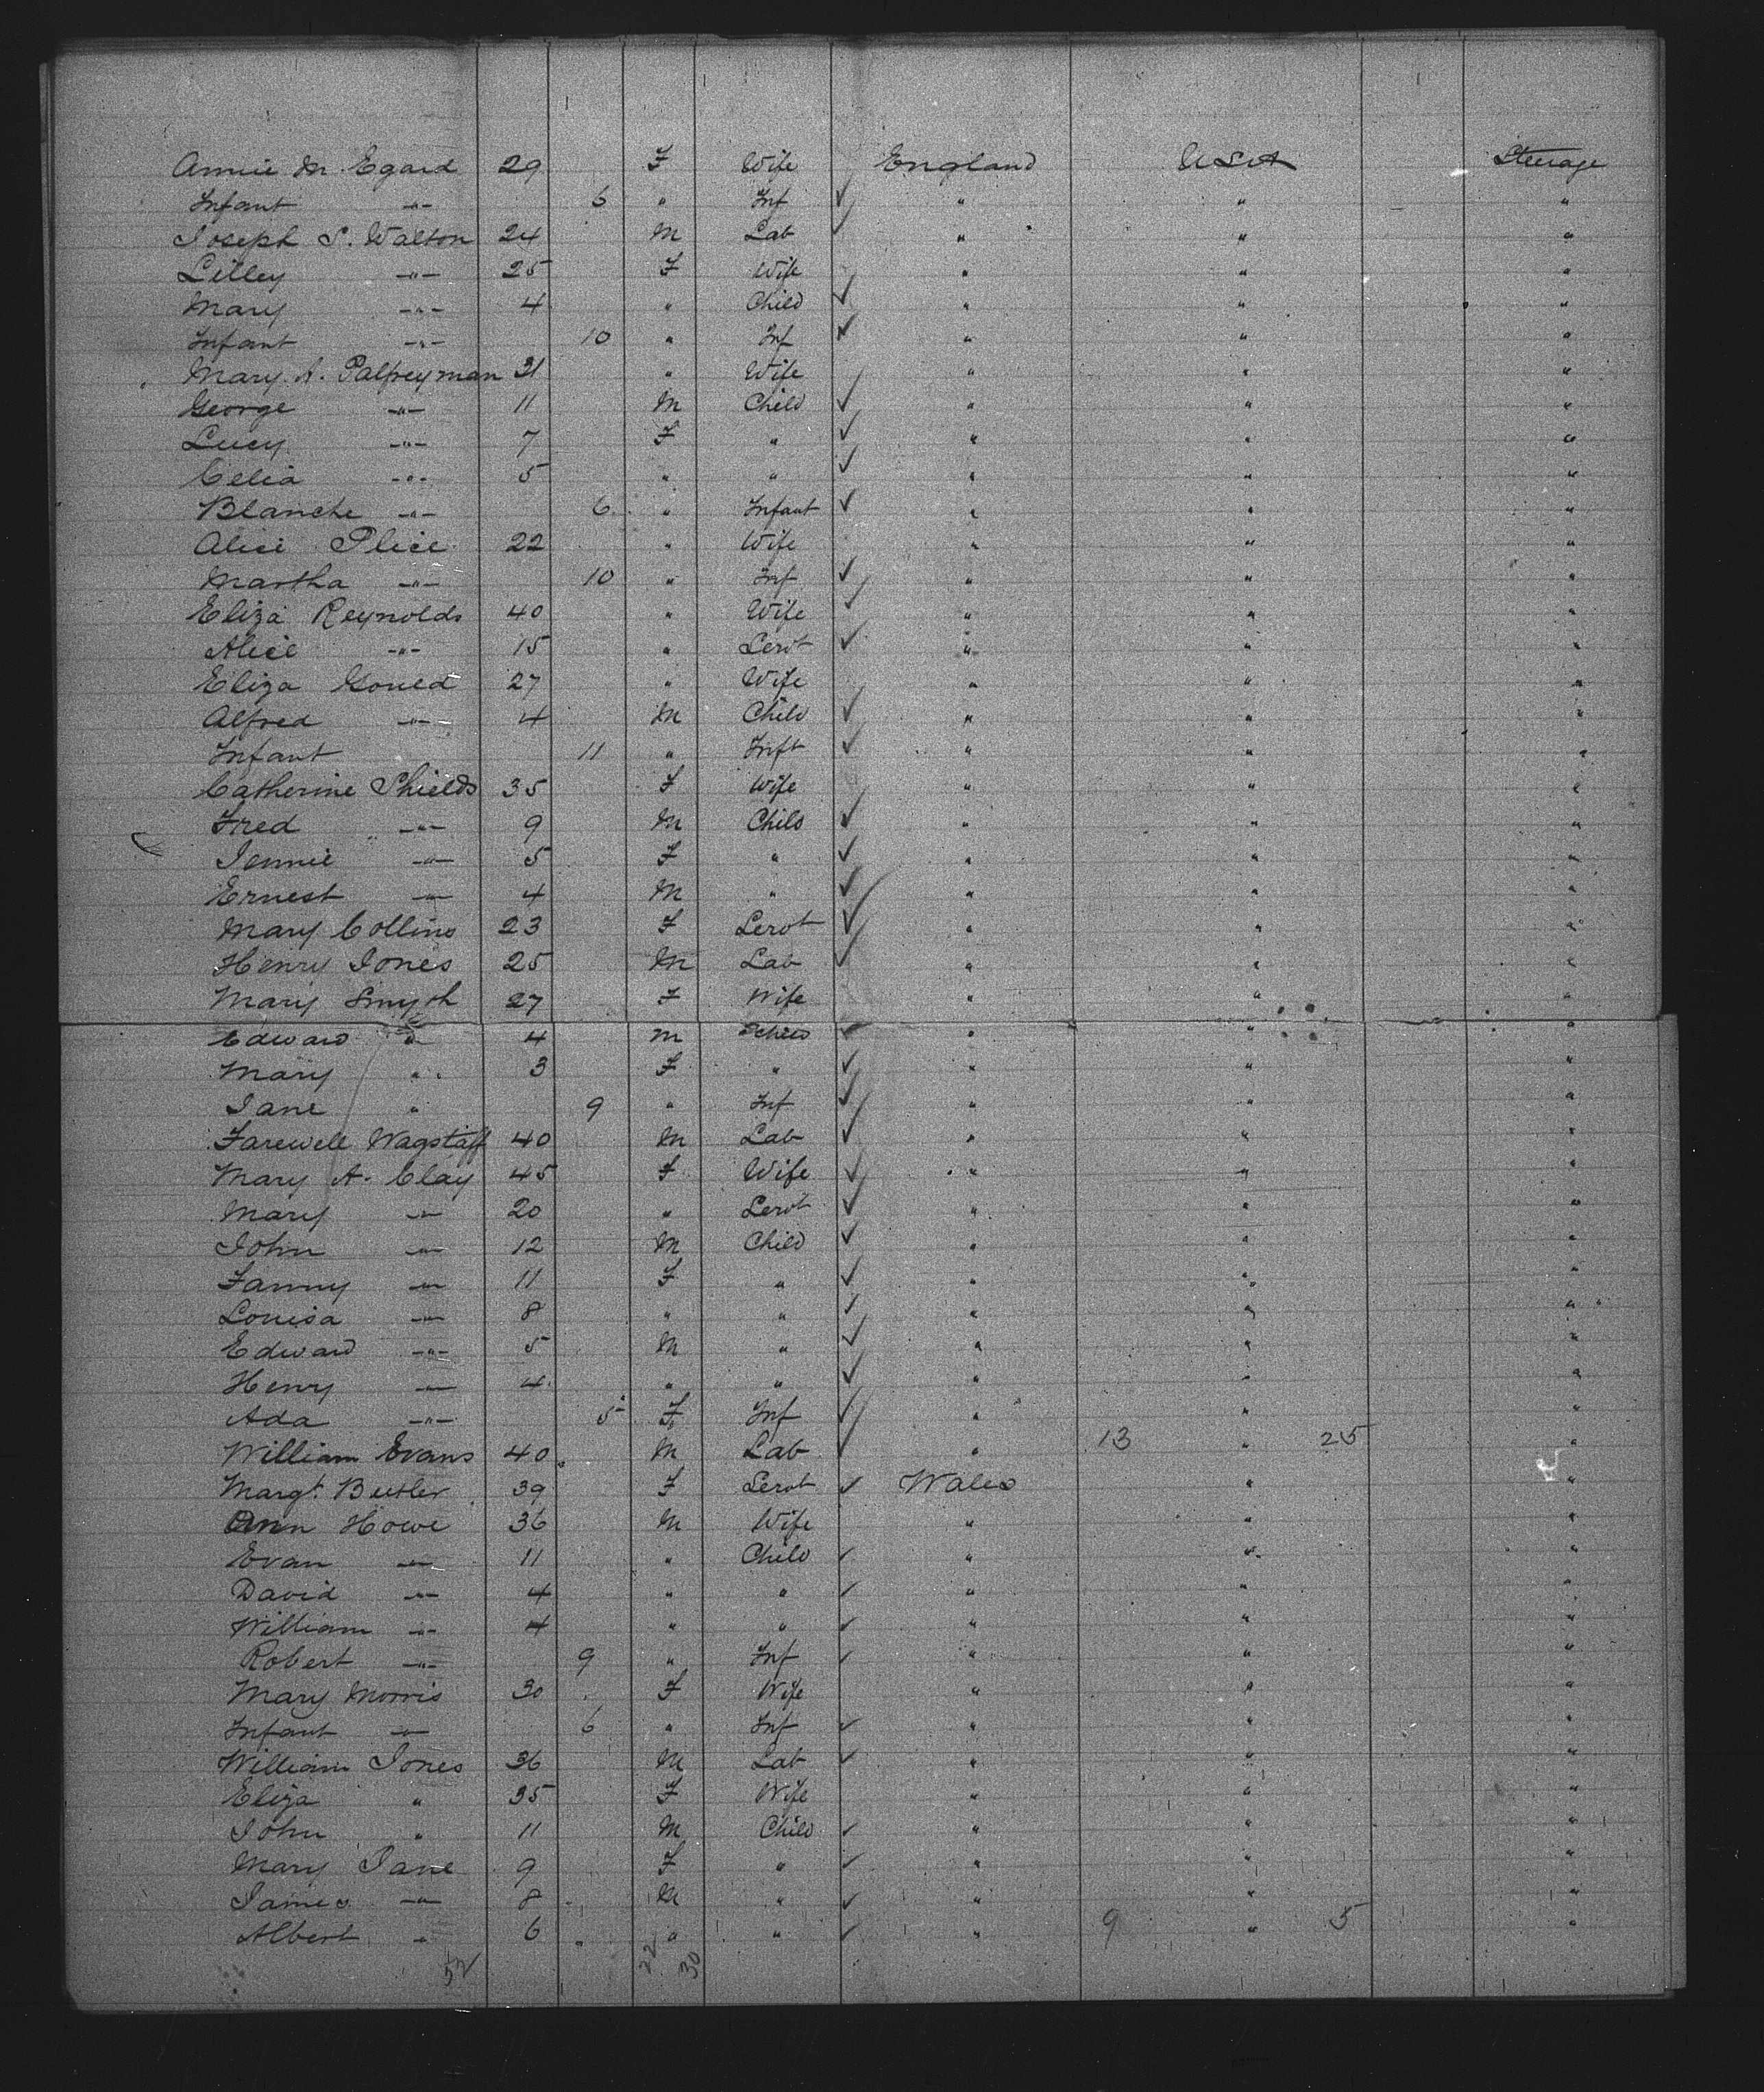 Annie M. Egard 29 F Wife England USA Steerage
Infant -"- 6 " Inf ✓ " " "
Joseph S. Walton 24 M Lab ✓ " " "
Lilley -"- 25 F Wife " " "
Mary -"- 4 " Child ✓ " " "
Infant -"- 10 " Inf ✓ " " "
Mary. A. Palfreyman 31 " Wife " " "
George -"- 11 M Child ✓ " " "
Lucy -"- 7 F " ✓ " " "
Celia -"- 5 " " ✓ " " "
Blanche -"- 6 " Infant ✓ " " "
Alice Plice 22 " Wife " " "
Martha -"- 10 " Inf ✓ " " "
Eliza Reynolds 40 " Wife ✓ " " "
Alice -"- 15 " Servt ✓ " " "
Eliza Gould 27 " Wife " " "
Alfred -"- 4 M Child ✓ " " "
Infant 11 " Inft ✓ " " "
Catherine Shields 35 F Wife " " "
Fred -"- 9 M Child ✓ " " "
Jennie -"- 5 F " ✓ " " "
Ernest -"- 4 M " ✓ " " "
Mary Collins 23 F Servt ✓ " " "
Henry Jones 25 M Lab ✓ " " "
Mary Smyth 27 F Wife " " "
Edward " 4 M Child ✓ " " "
Mary " 3 F " ✓ " " "
Jane " 9 " Inf ✓ " " "
Farewell Wagstaff 40 M Lab ✓ " " "
Mary A. Clay 45 F Wife ✓ " " "
Mary -"- 20 " Servt ✓ " " "
John -"- 12 M Child ✓ " " "
Fanny -"- 11 F " ✓ " " "
Louisa -"- 8 " " ✓ " " "
Edward -"- 5 M " ✓ " " "
Henry -"- 4 " " ✓ " " "
Ada -"- 5 F Inf ✓ " " "
William Evans 40 M Lab ✓ " 13 " 25 "
Margt. Butler 39 F Servt ✓ Wales " "
Ann Howe 36 M Wife " " "
Evan -"- 11 " Child ✓ " " "
David -"- 4 " " ✓ " " "
William -"- 4 " " ✓ " " "
Robert -"- 9 " Inf ✓ " " "
Mary Morris 30 F Wife " " "
Infant -"- 6 " Inf ✓ " " "
William Jones 36 M Lab ✓ " " "
Eliza " 35 F Wife " " "
John " 11 M Child ✓ " " "
Mary Jane 9 F " ✓ " " "
James -"- 8 M " ✓ " " "
Albert " 6 " " ✓ " 9 " 5 "
52 22 30